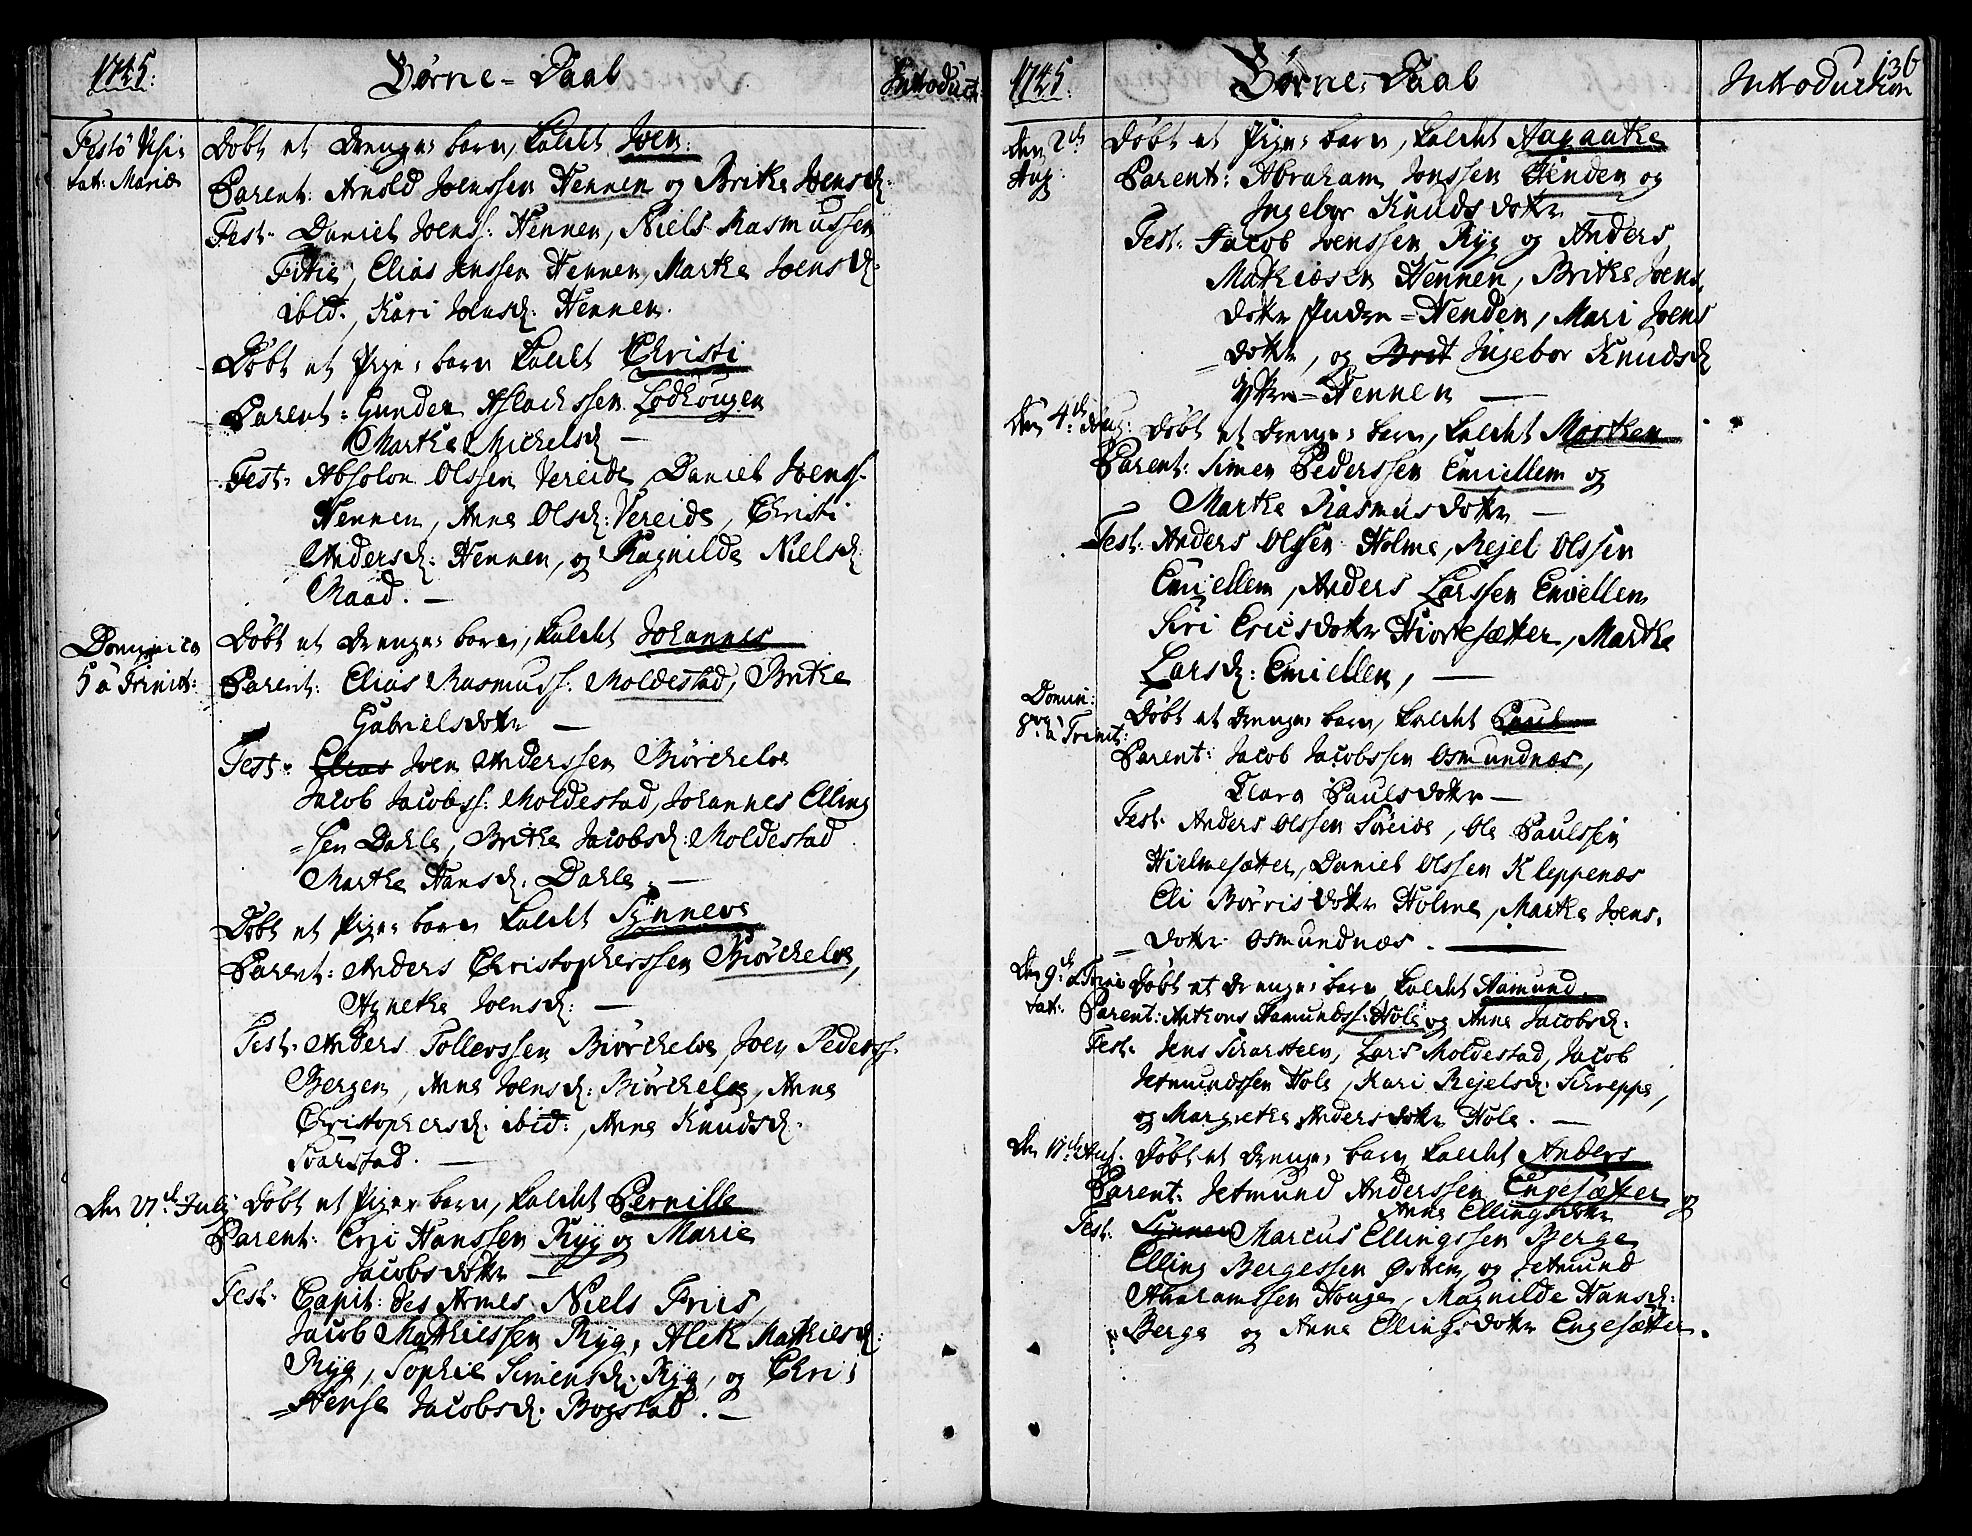 1745.
Børne-Daab
Introduct:
Festo Visi=
tat: Mariæ
Døbt et Drenge-barn, kaldet Joen.
Parent: Arnold Joenssen Hennen og Brithe Joensd:
Test: Daniel Joens: Hennen, Niels Rasmussen
Fitie, Elias Jenssen Hennen, Marthe Joensd.
ibid., Kari Joensd. Hennen.
Døbt et Pige-barn kaldet Christi
Parent: Gunder Aslachssen Lodhougen
Marthe Michelsd —
Test: Absolon Olssen Vereide, Daniel Joens.
Hennen, Anne Olsd: Vereide, Christi
Andersd: Hennen, og Ragnilde Nielsd:
Raad. —
Dominica
5 à Trinit:
Døbt et Drenge-barn, kaldet Johannes
Parent: Elias Rasmuss: Moldestad, Brithe
Gabrielsdotter —
Test: Elias Joen Anderssen Biørchelos
Jacob Jacobss: Moldestad, Johannes Elling
=sen Dahle, Brithe Jacobsd: Moldestad
Marthe Hansd. Dahle. —
Døbt et Pige-barn kaldet Synneve
Parent: Anders Christopherssen Biørchelos,
Agnethe Joensd: —
Test. Anders Tollevssen Biørchelos, Joen Peders.
Bergem, Anne Joensd: Biørchelos, Anne
Christophersd. ibid:, Anne Knudsd.
Svarstad. —
Den 27de Julj
Døbt et Pige-barn, kaldet Pernille
Parent: Erji Hanssen Ryg og Marie
Jacobsdotter —
Test. Capit: des Armes Niels Friis,
Jacob Mathiessen Ryg, Aleth Mathiesd:
Ryg, Sophie Simensd. Ryg, og Chri=
=stense Jacobsd. Bogstad. —
1745.
Børne-Daab
Introduction
136
Den 2de
Aug.
Døbt et Pige-barn, kaldet Aagaathe
Parent: Abraham Jonssen Henden og
Ingebor Knudsdotter
Test. Jacob Joenssen Ryg og Anders
Mathiesen Hennen, Brithe Joens
dotter Indre=Henden, Mari Joens
=dotter, og Brit Ingebor Knudsd
Yttre=Hennen —
Den 4de Aug:
Døbt et Drenge-barn, kaldet Morthen
Parent: Simen Pederssen Emiellem og
Marthe Rasmusdotter —
Test. Anders Olssen Holme, Rejel Olssen
Emiellem, Anders Larssen Emiellem
Siri Ericsdotter Hiortesætter, Marthe
Larsd: Emiellem, —
Domin:
8va à Trinit:
Døbt et Drenge-barn, kaldet Paul
Parent: Jacob Jacobssen Osmundnæs,
Clara Paulsdotter —
Test. Anders Olssen Søreide, Ole Paulssen
Hielmesætter, Daniel Olssen Kleppenæs
Eli Børrisdotter Holme, Marthe Joens.
=dotter Osmundnæs. —
Den 9de à Trini
tat:
Døbt et Drenge-barn kaldet Aamund.
Parent: Anthons Aamundss: Hole og Anne Jacobsd.
Test. Jens Scharsteen, Lars Moldestad, Jacob
Jetmundssen Hole, Kari Rejelsd. Schreppe,
og Margrethe Andersdotter Hole. —
Den 17de Aug.
Døbt et Drenge-barn kaldet Anders
Parent. Jetmund Anderssen Engesætter og
Anne Ellingsdotter
Test. Synnev Marcus Ellingssen Berge
Elling Bergessen Østrem, og Jetmund
Abrahamssen Houge, Magnilde Hansd:
Berge og Anne Olingsdotter Engesætter.